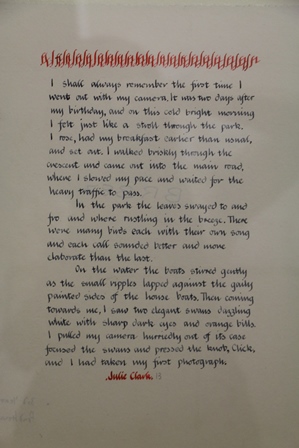 I shall always remember the first time I
went out with my camera. It was two days after
my birthday, and on this cold bright morning
I felt just like a stroll through the park.
I rose, had my breakfast earlier than usual,
and set out. I walked briskly through the
crescent and came out into the main road,
where I slowed my pace and waited for the
heavy traffic to pass.
In the park the leaves swayed to and
fro and where rustling in the breeze. There
were many birds each with their own song
and each call sounded better and more
elaborate than the last.
On the water the boats stirred gently
as the small ripples lapped against the gaily
painted sides of the house boats. Then coming
towards me, I saw two elegant swans dazzling
white with sharp dark eyes and orange bills.
I pulled my camera hurriedly out of its case
focused the swans and pressed the knob, Click,
and I had taken my first photograph.
Julie Clark.